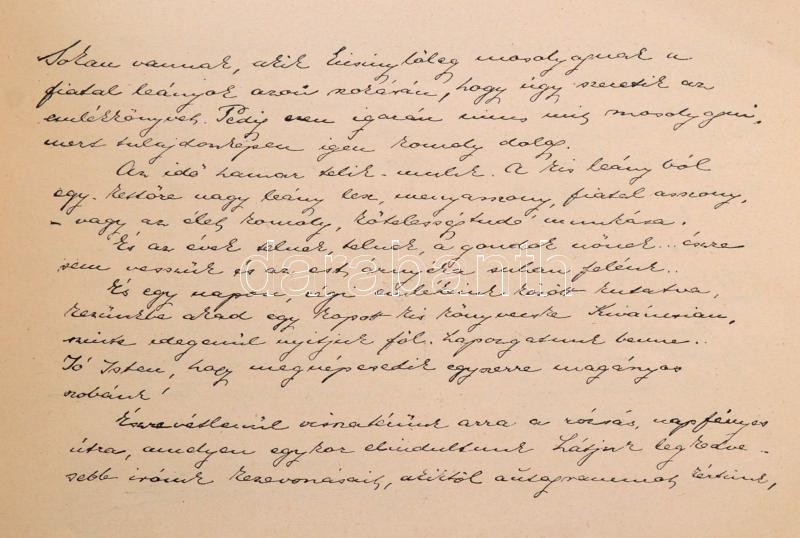 Sokan vannak, akik kicsinylőleg mosolyognak a
fiatal leányok azon szokásán, hogy úgy szeretik az
emlékkönyvet. Pedig ezen igazán nincs mit mosolyogni,
mert tulajdonképen igen komoly dolog.
Az idő hamar telik-mulik. A kis leányból
egy-kettőre nagy leány lesz, menyasszony, fiatal asszony,
- vagy az élet komoly, kötelességtudó munkása.
És az évek telnek, telnek, a gondok nőnek... észre
sem vesszük és az est árnyéka suhan felénk..
És egy napon, régi emlékeink között kutatva,
kezünkbe akad egy kopott kis könyvecske. Kiváncsian,
szinte idegenül nyitjuk föl. Lapozgatunk benne..
Jó Isten, hogy megnépesedik egyszerre magányos
szobánk!
Észrevétlenül visszatérünk arra a rózsás, napfényes
útra, amelyen egykor elindultunk. Látjuk legkedve-
sebb iróink kézvonásait, akiktől autogrammot kértünk,
darabanth